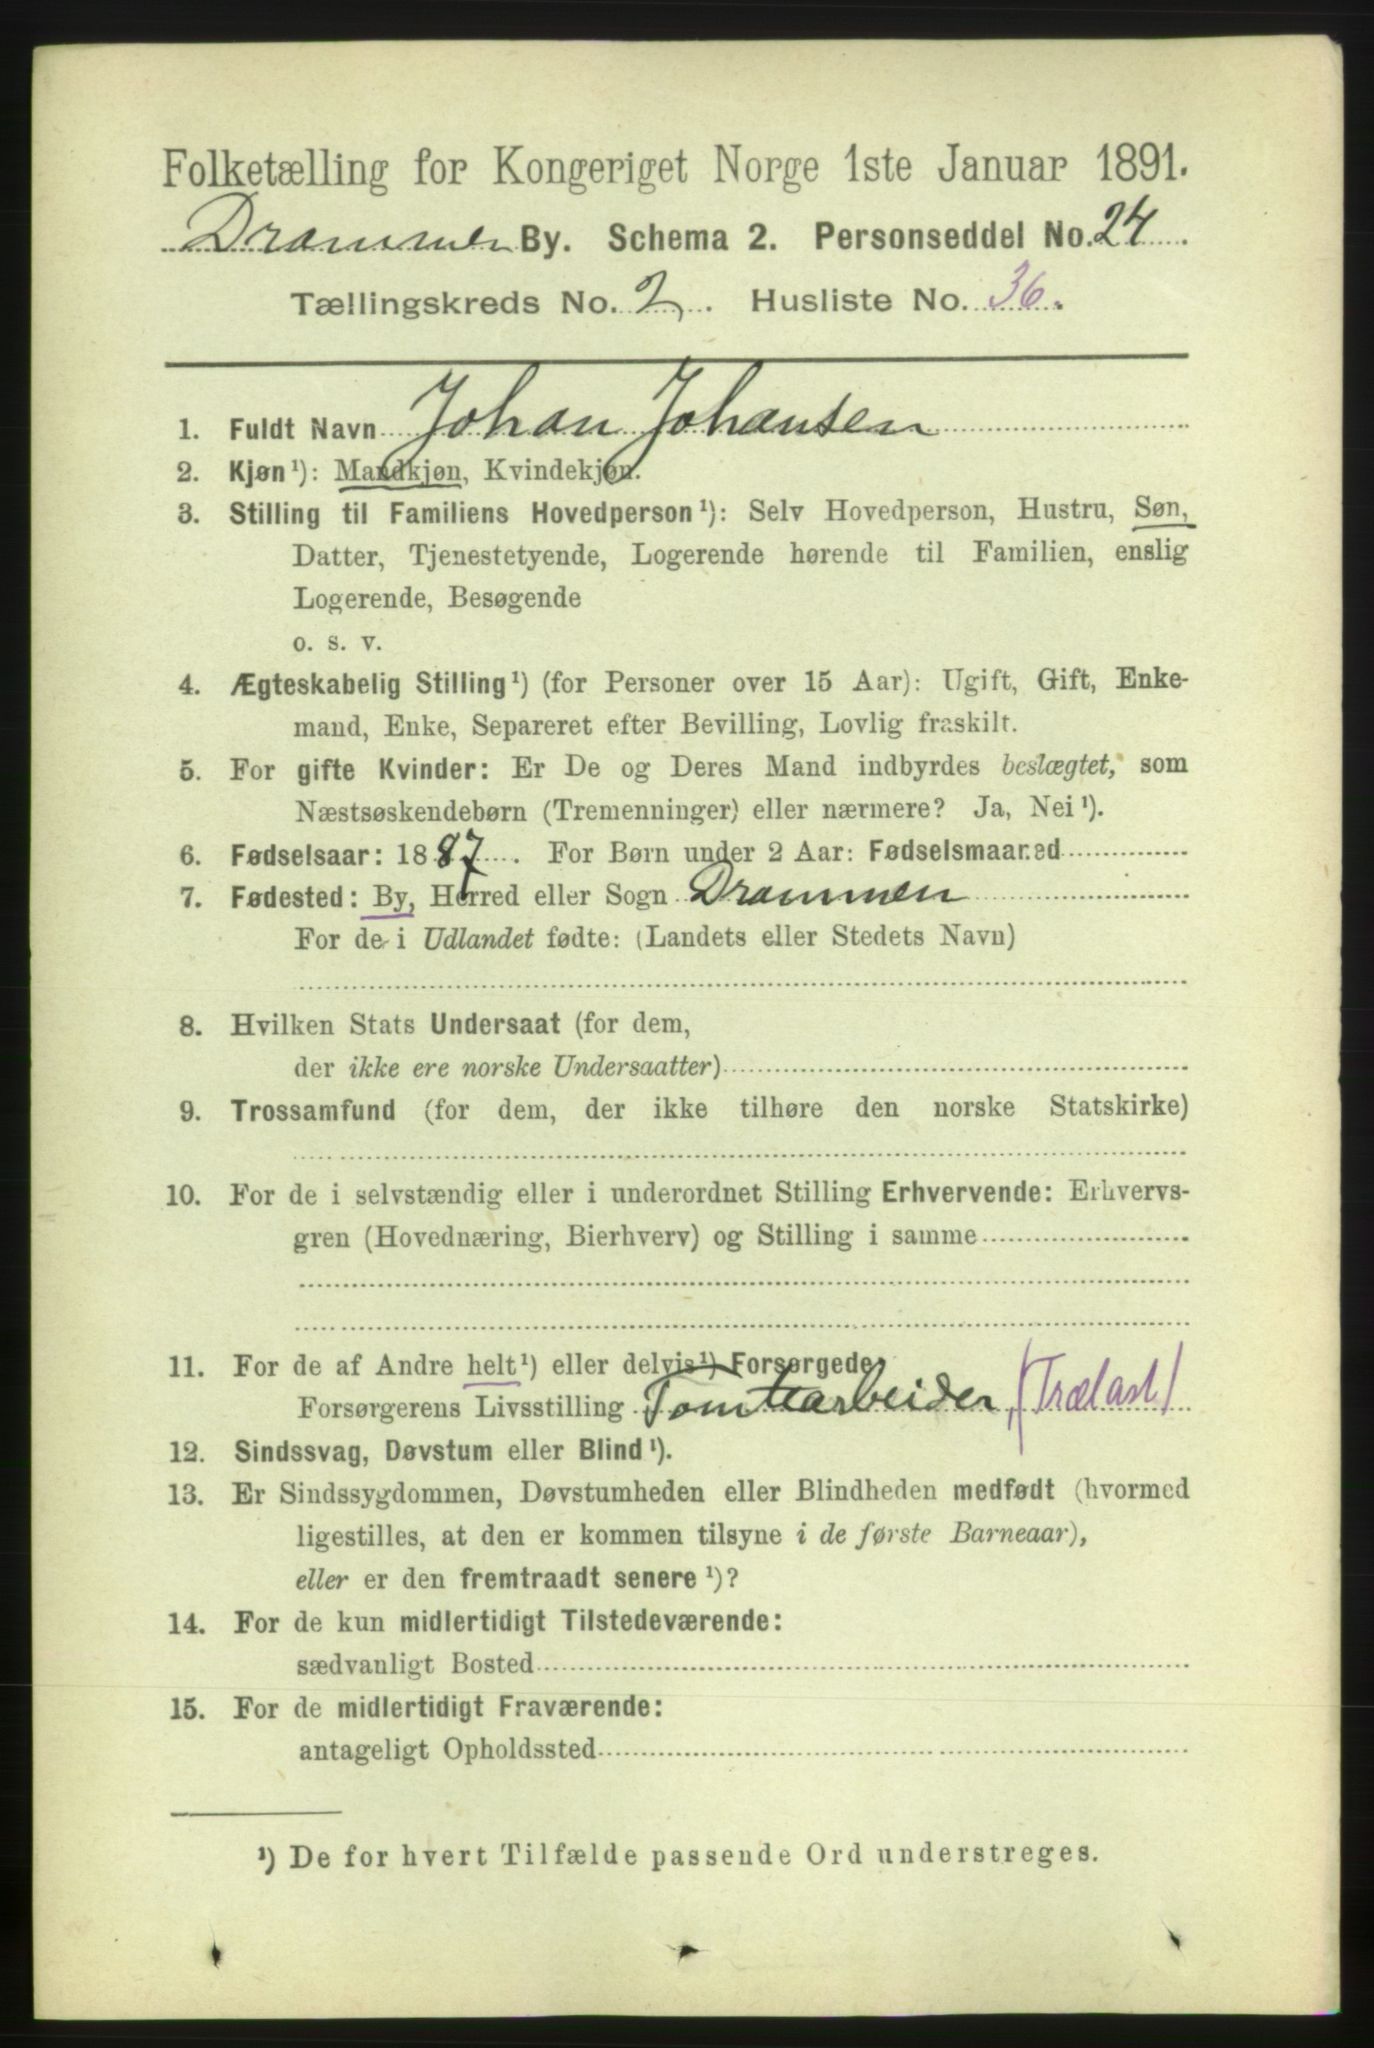 Folketælling for Kongeriget Norge 1ste Januar 1891.
Drammen By. Schema 2. Personseddel No. 24.
Tællingskreds No. 2. Husliste No. 36.
1. Fuldt Navn Johan Johansen
2. Kjøn¹): Mandkjøn, Kvindekjøn.
3. Stilling til Familiens Hovedperson¹): Selv Hovedperson, Hustru, Søn,
Datter, Tjenestetyende, Logerende hørende til Familien, enslig
Logerende, Besøgende
o. s. v.
4. Ægteskabelig Stilling¹) (for Personer over 15 Aar): Ugift, Gift, Enke-
mand, Enke, Separeret efter Bevilling, Lovlig fraskilt.
5. For gifte Kvinder: Er De og Deres Mand indbyrdes beslægtet, som
Næstsøskendebørn (Tremenninger) eller nærmere? Ja, Nei¹).
6. Fødselsaar: 1887. For Børn under 2 Aar: Fødselsmaaned
7. Fødested: By, Herred eller Sogn Drammen
For de i Udlandet fødte: (Landets eller Stedets Navn)
8. Hvilken Stats Undersaat (for dem,
der ikke ere norske Undersaatter)
9. Trossamfund (for dem, der ikke tilhøre den norske Statskirke)
10. For de i selvstændig eller i underordnet Stilling Erhvervende: Erhvervs-
gren (Hovednæring, Bierhverv) og Stilling i samme
11. For de af Andre helt¹) eller delvis¹) Forsørgede:
Forsørgerens Livsstilling Tomtearbeider, (Trælast)
12. Sindssvag, Døvstum eller Blind¹).
13. Er Sindssygdommen, Døvstumheden eller Blindheden medfødt (hvormed
ligestilles, at den er kommen tilsyne i de første Barneaar),
eller er den fremtraadt senere¹)?
14. For de kun midlertidigt Tilstedeværende:
sædvanligt Bosted
15. For de midlertidigt Fraværende:
antageligt Opholdssted
¹) De for hvert Tilfælde passende Ord understreges.